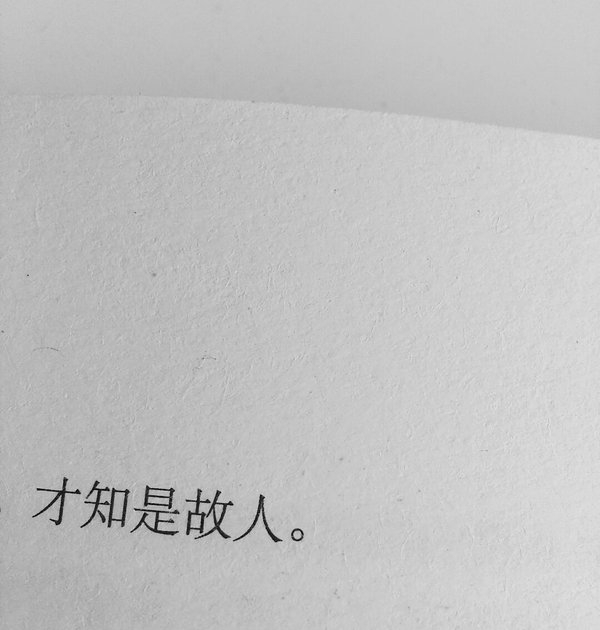 才知是故人。